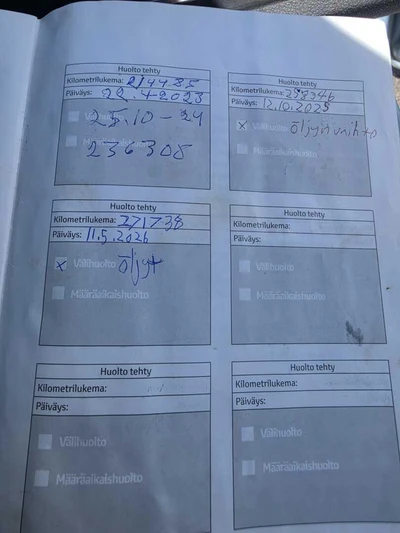 Huolto tehty
Kilometrilukema: 214485
Päiväys: 22.4.2023
25.10-24
236308
Huolto tehty
Kilometrilukema: 258346
Päiväys: 12.10.2025
x Välihuolto Öljyt vaihto
Määräaikaishuolto
Huolto tehty
Kilometrilukema: 271738
Päiväys: 11.5.2026
x Välihuolto öljyt
Määräaikaishuolto
Huolto tehty
Kilometrilukema:
Päiväys:
Välihuolto
Määräaikaishuolto
Huolto tehty
Kilometrilukema:
Päiväys:
Välihuolto
Määräaikaishuolto
Huolto tehty
Kilometrilukema:
Päiväys:
Välihuolto
Määräaikaishuolto